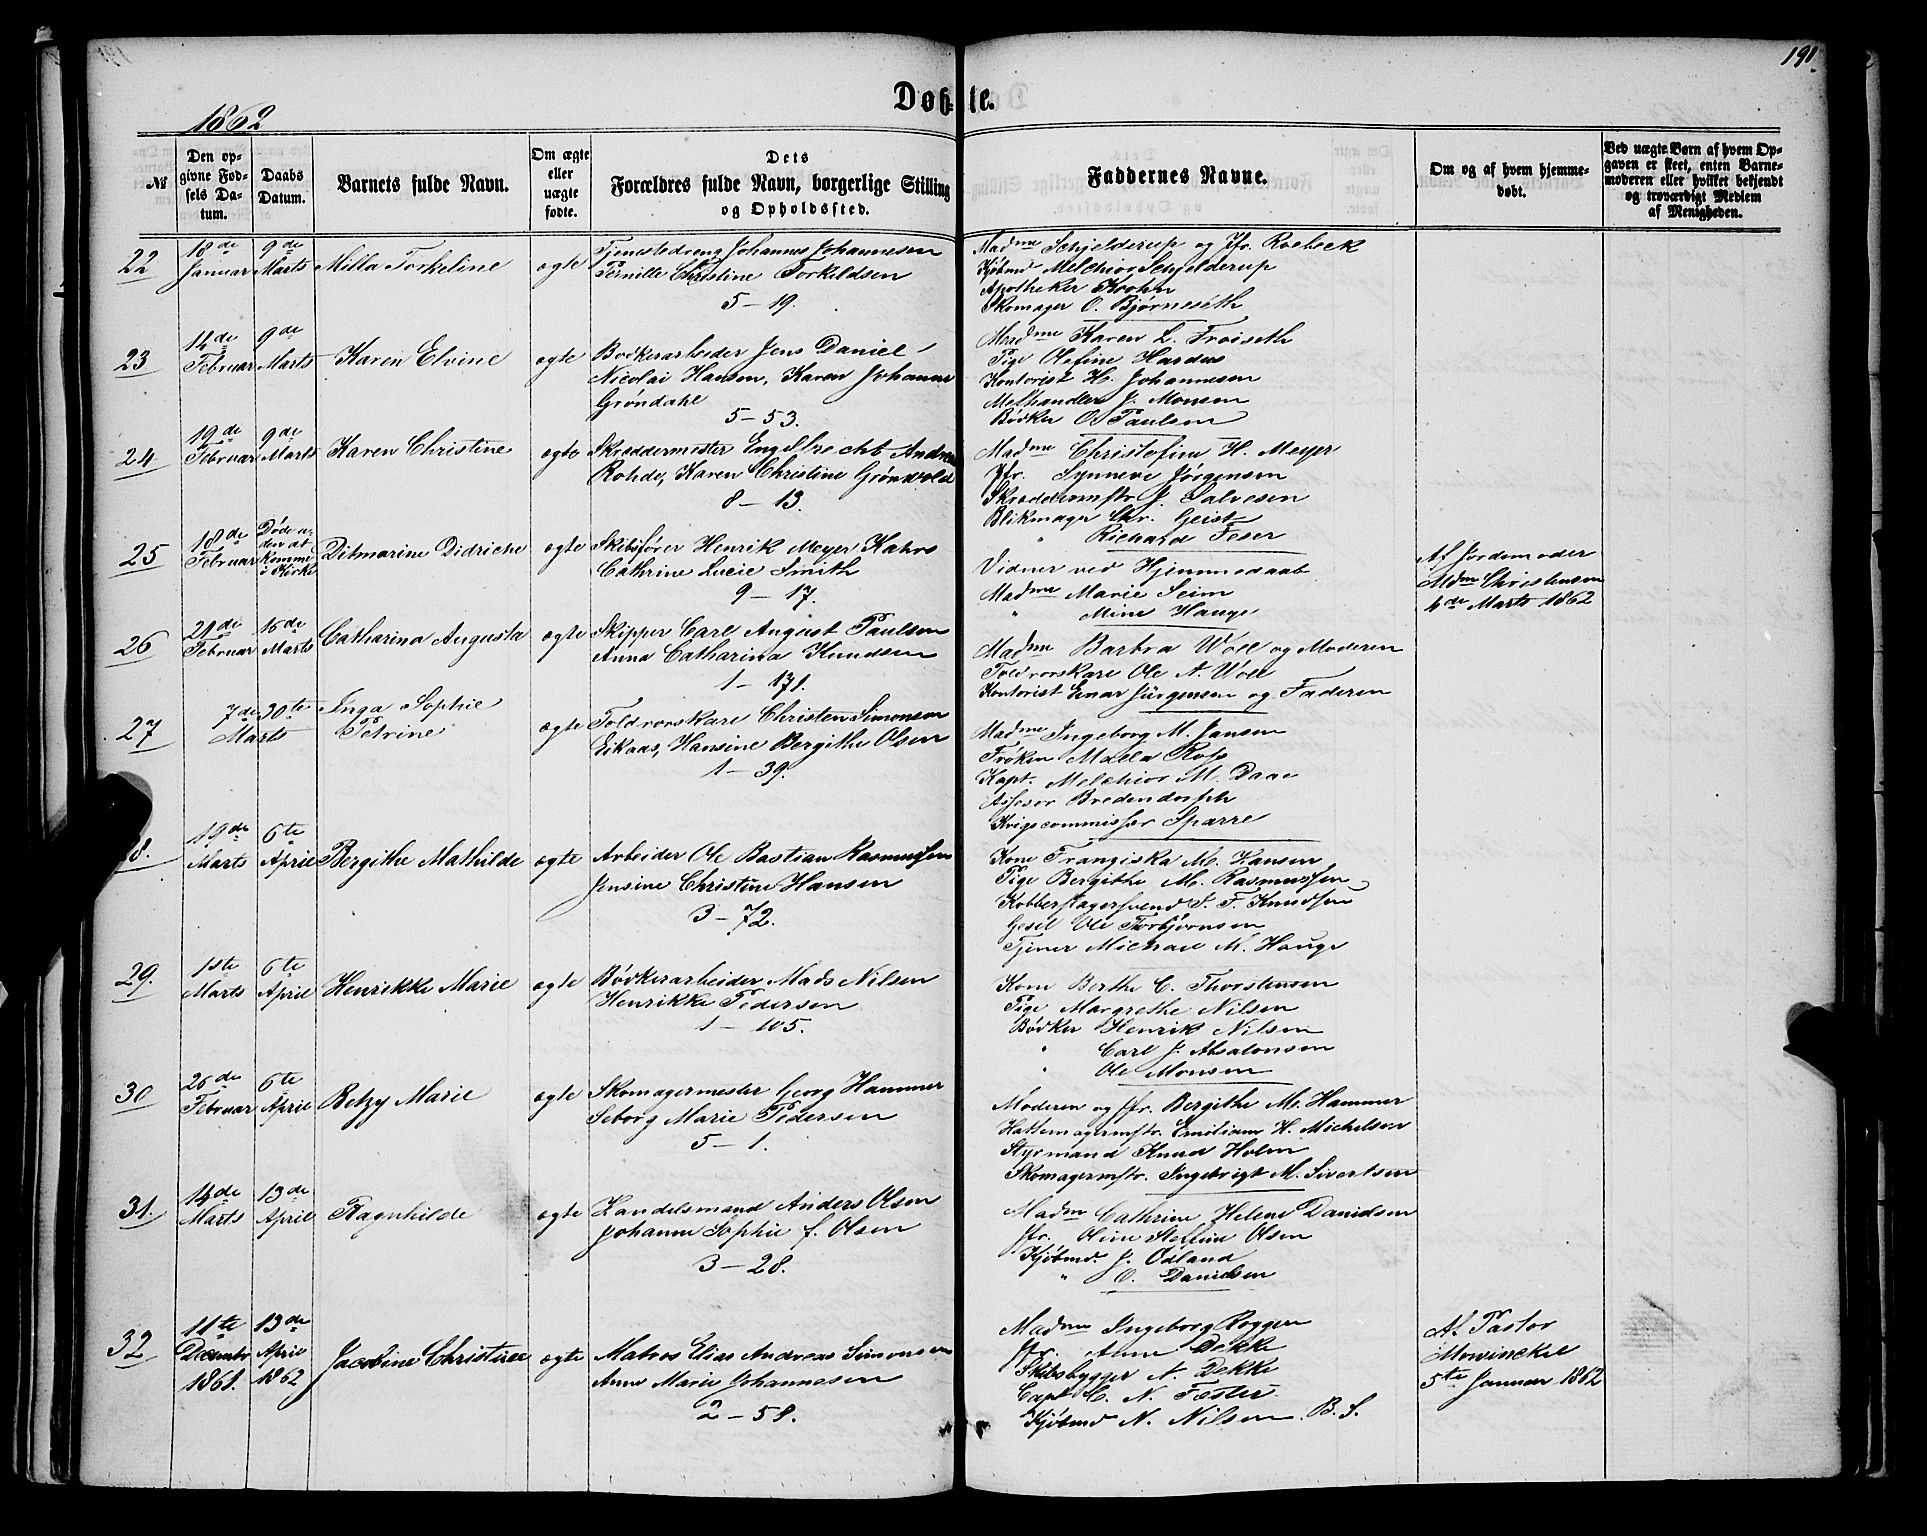 191.
Døbte.
1862
№
Den opgivne Fødsels Datum.
Daabs Datum.
Barnets fulde Navn.
Om ægte eller uægte fødte.
Dets Forældres fulde Navn, borgerlige Stilling og Opholdssted.
Faddernes Navne.
Om og af hvem hjemmedøbt.
Ved uægte Børn af hvem Opgaven er skeet, enten Barnemoderen eller hvilket bekjendt og troværdigt Medlem af Menigheden.
22
18de Januar
9de Marts
Milla Torkeline
ægte
Tjenestedreng Johannes Johannesen
Pernille Christine Torkildsen
5 - 19.
Madme Schjelderup og Jfr. Roebeck
Kjøbmd Melchior Schjelderup
Apotheker Krohn
Skomager O. Bjørneseth
23
14de Februar
9de Marts
Karen Elvine
ægte
Bødkerarbeider Jens Daniel
Nicolai Hansen, Karen Johanne
Grøndahl
5 - 53.
Madme Karen L. Froiseth
Pige Olefine Hardus
Kontorist H. Johannesen
Melhandler J. Monsen
Bødker O. Paulsen
24
19de Februar
9de Marts
Karen Christine
ægte
Skræddermester Engelbrecht Andreas
Rohde, Karen Christine Grønvold
8 - 13.
Madme Christofine H. Meyer
Jfr. Synneve Jørgensen
Skræddermstr J. Salvesen
Blikmager Chr. Geist
" Richard Feser
25
18de Februar
Døde uden at komme i Kirke
Ditmarine Didriche
ægte
Skibsfører Henrik Meyer Kahrs
Cathrine Lucie Smith
9 - 17.
Vidner ved Hjemmedaab
Madme Marie Seim
" Mine Hauge
Af Jordemoder
Mdm Christensen
4de Marts 1862
26
21de Februar
16de Marts
Catharina Augusta
ægte
Skipper Carl August Paulsen
Anna Catharina Knudsen
1 - 171.
Madme Barbra Woll og Moderen
Toldroerskarl Ole A. Woll
Kontorist Einar Jürgensen og Faderen
27
7de Marts
30te
Inga Sophie
Petrine
ægte
Toldroerskarl Christen Simonsen
Eikaas, Hansine Bergithe Olsen
1 - 39.
Madme Ingeborg M. Jansen
Frøken Malla Rose
Kapt. Melchior M. Daae
Assesor Bredendorph
Krigscommissær Sparre
8.
19de Marts
6te April
Bergithe Mathilde
ægte
Arbeider Ole Bastian Rasmussen
Jensine Christine Hansen
3 - 72.
Kone Frangiska M. Hansen
Pige Bergithe M. Rasmussen
Kobberslagersvend S. F. Knudsen
Gesel Ole Thorbjørnsen
Tjener Michael M. Hauge
29.
1ste Marts
6te April
Henrikke Marie
ægte
Bødkerarbeider Mads Nilsen
Henrikke Pedersen
1 - 105.
Kone Berthe C. Thorstensen
Pige Margrethe Nilsen
Bødker Henrik Nilsen
" Carl J. Absalonsen
" Ole Monsen
30
26de Februar
6te April
Betzy Marie
ægte
Skomagermester Georg Hammer
Seborg Marie Pedersen
5 - 1.
Moderen og Jfr. Bergithe M. Hammer
Hattemagermstr. Emilius H. Michelsen
Styrmand Knud Holm
Skomagermstr. Ingebrigt M. Sivertsen
31.
14de Marts
13de April
Ragnhilde
ægte
Handelsmand Anders Olsen
Johanne Sophie f. Olsen
3 - 28.
Madm Cathrine Helene Danielsen
Jfr. Oline Steffine Olsen
Kjøbmd. J. Ødland
" O. Danielsen
32
11te Decembr 1861.
13de April 1862
Jacobine Christine
ægte
Matros Elias Andreas Simonsen
Anne Marie Johannesen
2 - 58.
Madme Ingeborg Roggen
Jfr. Anne Dekke
Skibsbygger A. Dekke
Capt. C. N. Fæster
Kjøbmd N. Nilsen B. S.
Af Pastor
Mowinckel
5te Januar 1862